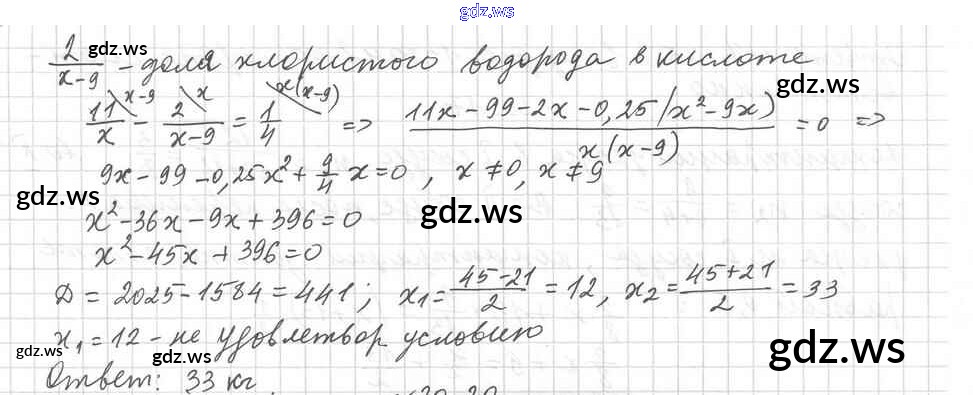 gdz.ws
2/(x-9) - доля хлористого водорода в кислоте
gdz.ws
gdz.ws
11/x^(x-9) - 2/(x-9)^x = 1/4^(x(x-9)) => (11x-99-2x-0,25(x²-9x))/(x(x-9)) = 0 =>
9x-99-0,25x²+9/4 x=0, x≠0, x≠9
gdz.ws
gdz.ws
x²-36x-9x+396=0
x²-45x+396=0
D = 2025-1584=441; x₁=(45-21)/2=12, x₂=(45+21)/2=33
x₁=12 - не удовлетвор условию
gdz.ws
gdz.ws
gdz.ws
Ответ: 33 кг.